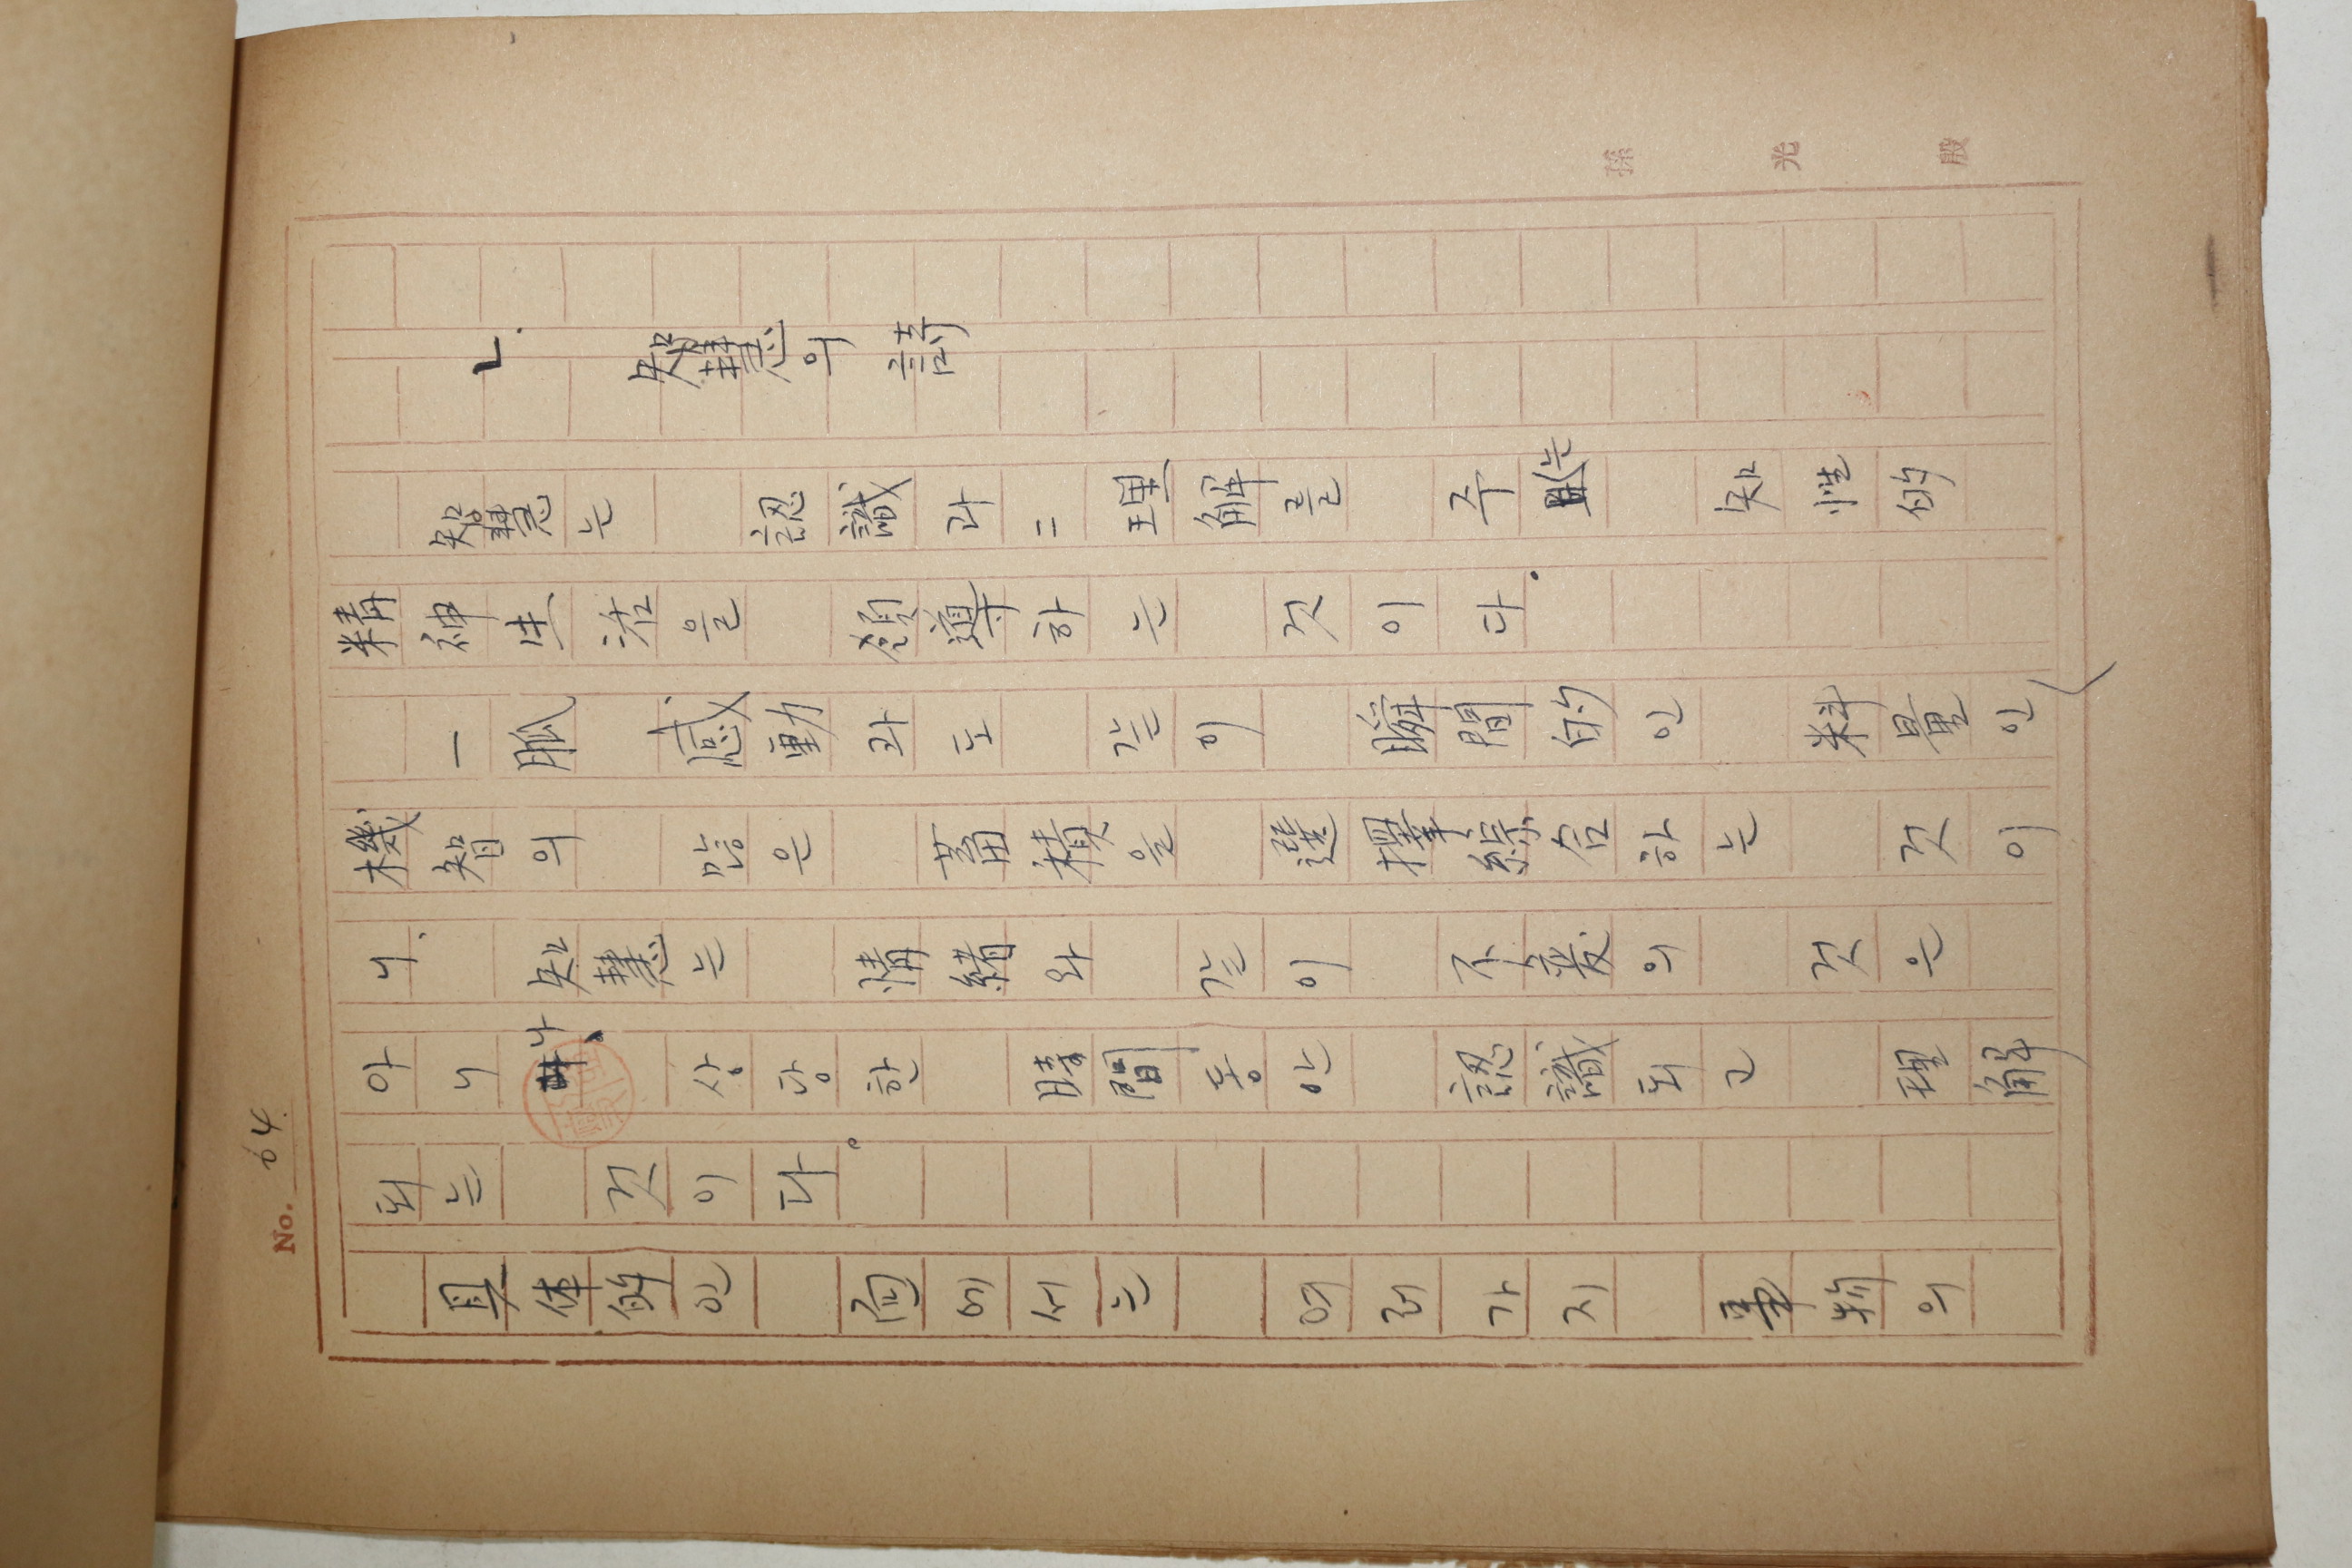 No. 64
ㄴ. 知慧의 詩
知慧는 認識과=理解를 주는 知性的
精神生活을 領導하는 것이다.
一脈 感動과도 같은 이 瞬間的인 料量인
機智의 많은 蓄積을 選擇綜合하는 것이
니. 知慧는 情緖와 같이 不変의 것은
아니나、 상당한 時間동안 認識되고 理解
되는 것이다。
具体的인 面에서는 여러가지 事物의
孫光殷